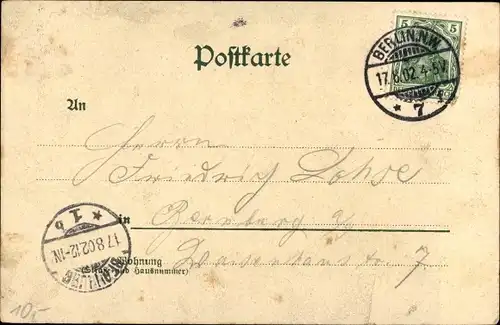 5 5
BERLIN, N.W.
17.8.02.4-5N.
* 7
Postkarte
An
Herrn
Friedrich Lohse
in Bernburg a/
* 1 b
17 8.02.12-1N.
BERNBURG
Wohnung
(Straße und Hausnummer)
7
10,-